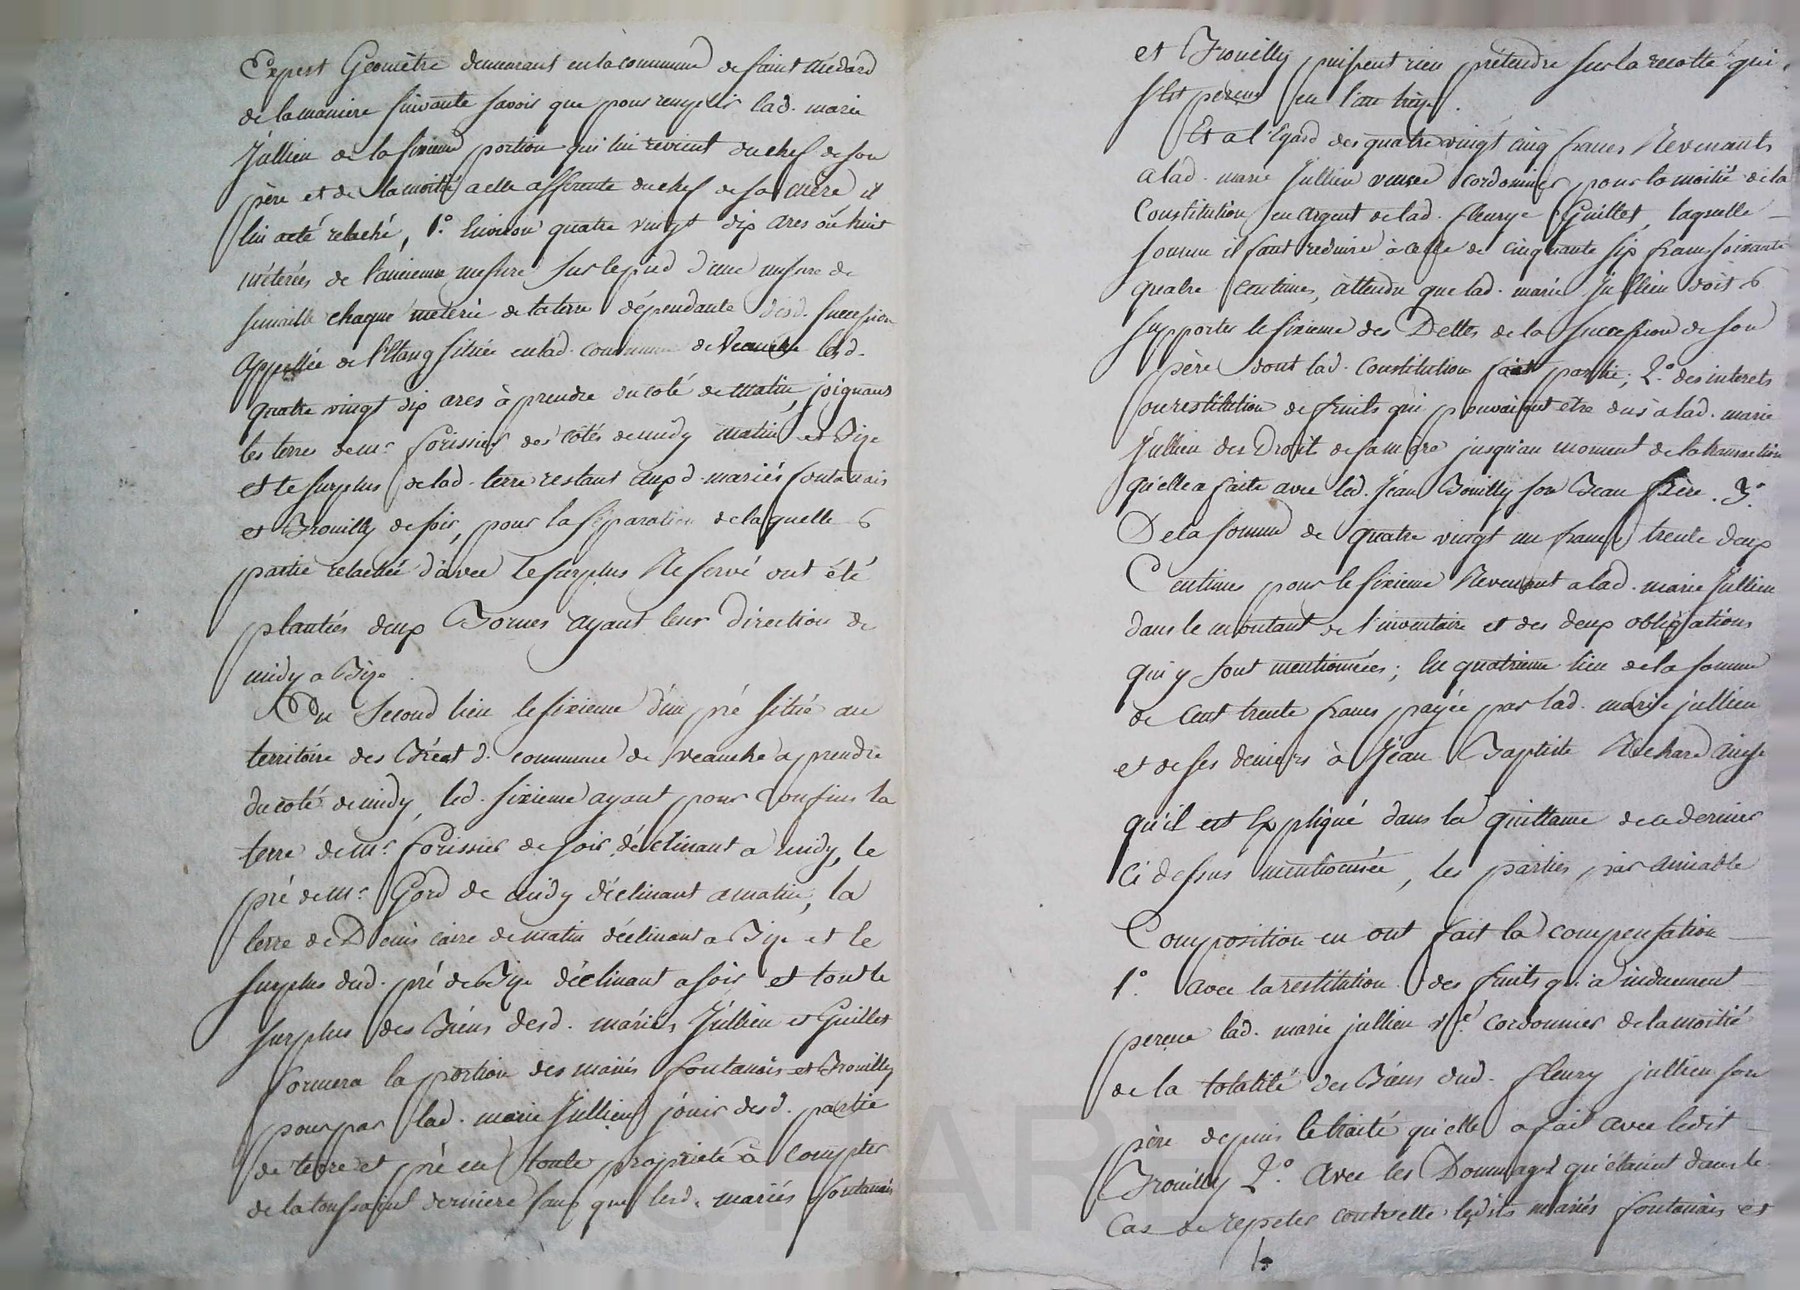 Expert Géomètre demeurant en la commune de saint Médard
de la maniere suivante savoir que pour remplir lad. marie
Jullien de la sixieme portion qui lui revient du chef de son
père et de la moitié a elle afferente du chef de sa mère il
lui a eté relaché, 1.° Environ quatre vingt dix ares ou huit
méterées de l'ancienne mesure sur le pied d'une mesure de
semaille chaque méterée de la terre dépendante desd. succession
appellée de l'Etang située en lad. commune de Veauche lesd.
quatre vingt dix ares à prendre du coté de matin, joignant
les terres de mr. forissier des cotés de midy matin et Bize
et le surplus de lad. terre restant auxd. mariés fontanais
et Brouilly de soir, pour la séparation de laquelle
partie relachée d'avec le surplus Reservé ont été
plantées deux Bornes ayant leur direction de
midy a Bize.
En second lieu le sixieme d'un pré situé au
territoire des Bréat d. commune de Veauche a prendre
du coté de midy, led. sixieme ayant pour Confins la
terre de mr. forissier de soir déclinant a midy, le
pré de mr. Gord de midy déclinant a matin, la
terre de Denis caire de matin déclinant a Bize et le
surplus dud. pré de Bize déclinant a soir et tout le
surplus des Biens desd. mariés Jullien et Guillet
formera la portion des mariés fontanais et Brouilly
pour par lad. marie Jullien jouir desd. partie
de terre et pré en toute propriété a compter
de la toussaint derniere sauf que lesd. mariés fontanais
et Brouilly puissent rien prétendre sur la recolte qui
s'est perçue en l'an treize.
Et a l'Egard des quatre vingt cinq francs Revenants
a lad. marie Jullien veuve cordonnier pour la moitié de la
Constitution en argent de lad. fleurye Guillet, laquelle
somme il faut reduire à celle de cinquante six francs soixante
quatre centimes, attendu que lad. marie Jullien doit
supporter le sixieme des Dettes de la succession de son
père dont lad. constitution fait partie; 2.° des interets
ou restitution de fruits qui pouvaient etre dus a lad. marie
Jullien des Droit de sa mere jusqu'au moment de la transaction
qu'elle a faite avec led. Jean Brouilly son Beau frère. 3.°
De la somme de quatre vingt un francs trente deux
Centimes pour le sixieme Revenant a lad. marie Jullien
dans le montant de l'inventaire et des deux obligations
qui y sont mentionnées; En quatrieme lieu de la somme
de cent trente francs payée par lad. marie jullien
et de ses deniers à Jean Baptiste Richard ainsy
qu'il est Expliqué dans la quittance de ce dernier
ci dessus mentionnée, les parties par amiable
Composition en ont fait la compensation
1.° avec la restitution des fruits qu'a induement
perçue lad. marie jullien ve. cordonnier de la moitié
de la totalité des Biens dud. fleury jullien son
père depuis le traité qu'elle a fait avec ledit
Brouilly 2.° avec les Dommages qu'etaient dans le
Cas de repeter contr'elle lesdits mariés fontanais et